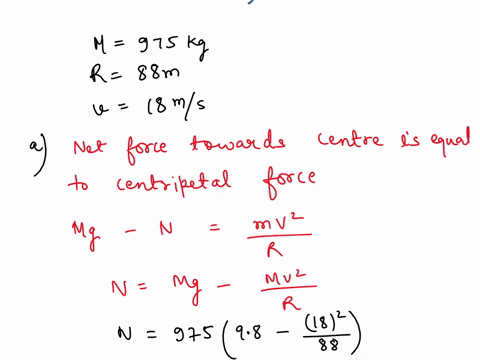 M = 975 kg
R = 88m
v = 18 m/s
a) Net force towards centre is equal
to centripetal force
Mg - N = mv²/R
N = Mg - Mv²/R
N = 975 (9.8 - (18)²/88)